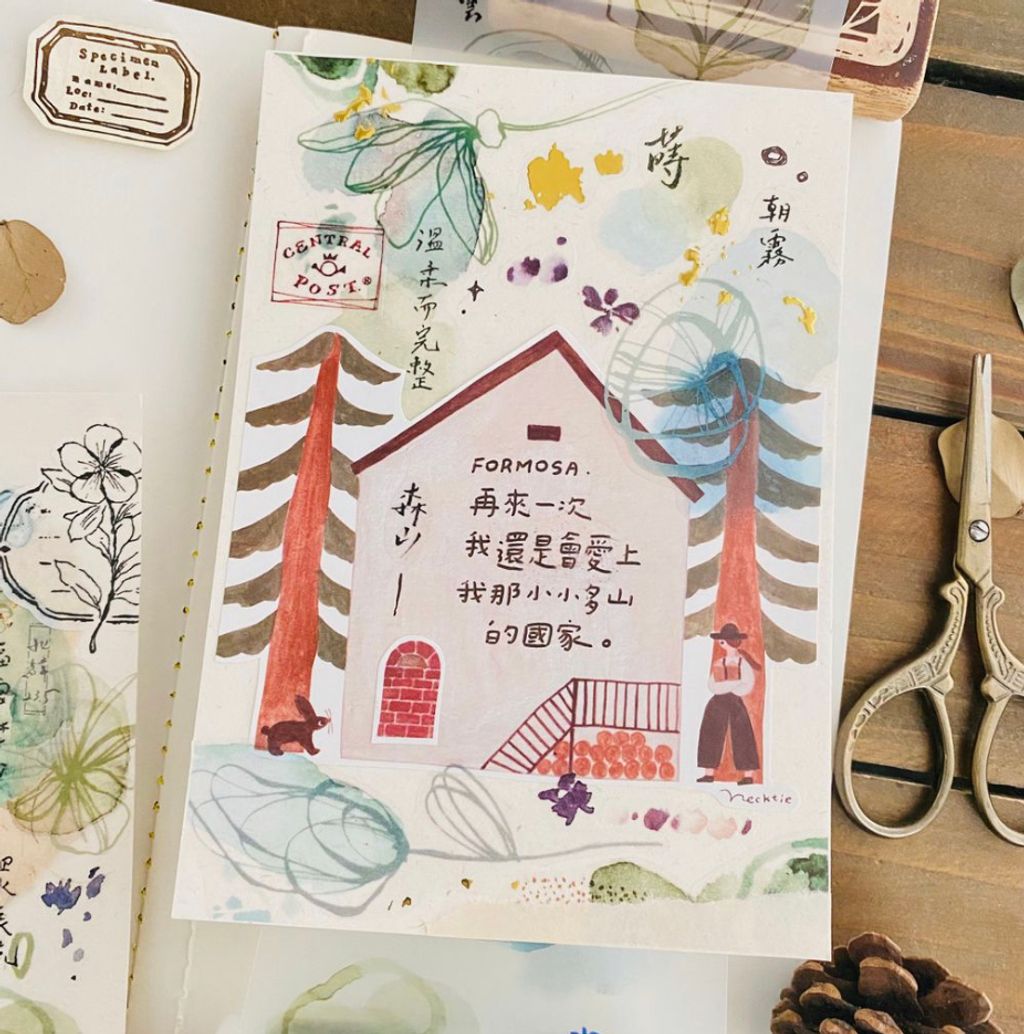 Specimen
Label.
Name:
Loc:
Date:
蒔
朝霧
CENTRAL
POST.®
溫柔而完整
FORMOSA.
再來一次
我還是會愛上
我那小小多山
的國家。
森山
Necktie